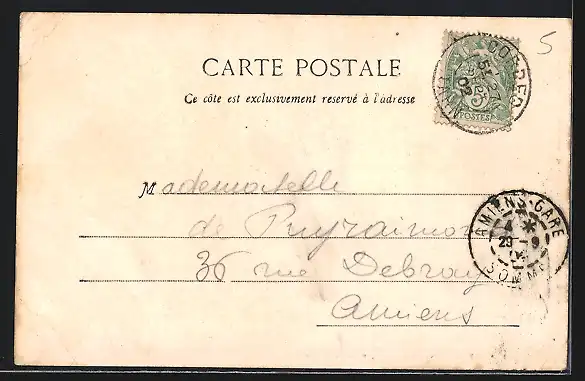 5
CARTE POSTALE
Ce côte est exclusivement reservé à l'adresse
Mademoiselle
de Puyraimond
36 rue Debray
Amiens
POSTES
AMIENS-GARE
29 - 9
SOMME